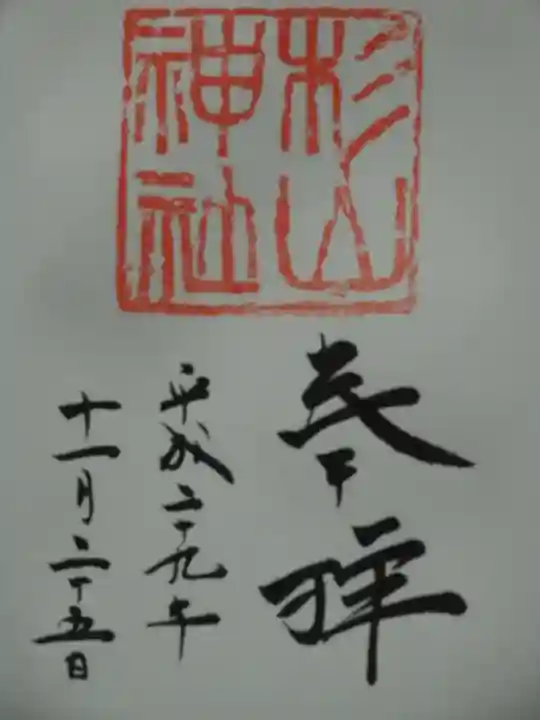 杉山
神社
奉拝
平成二十九年
十一月二十五日